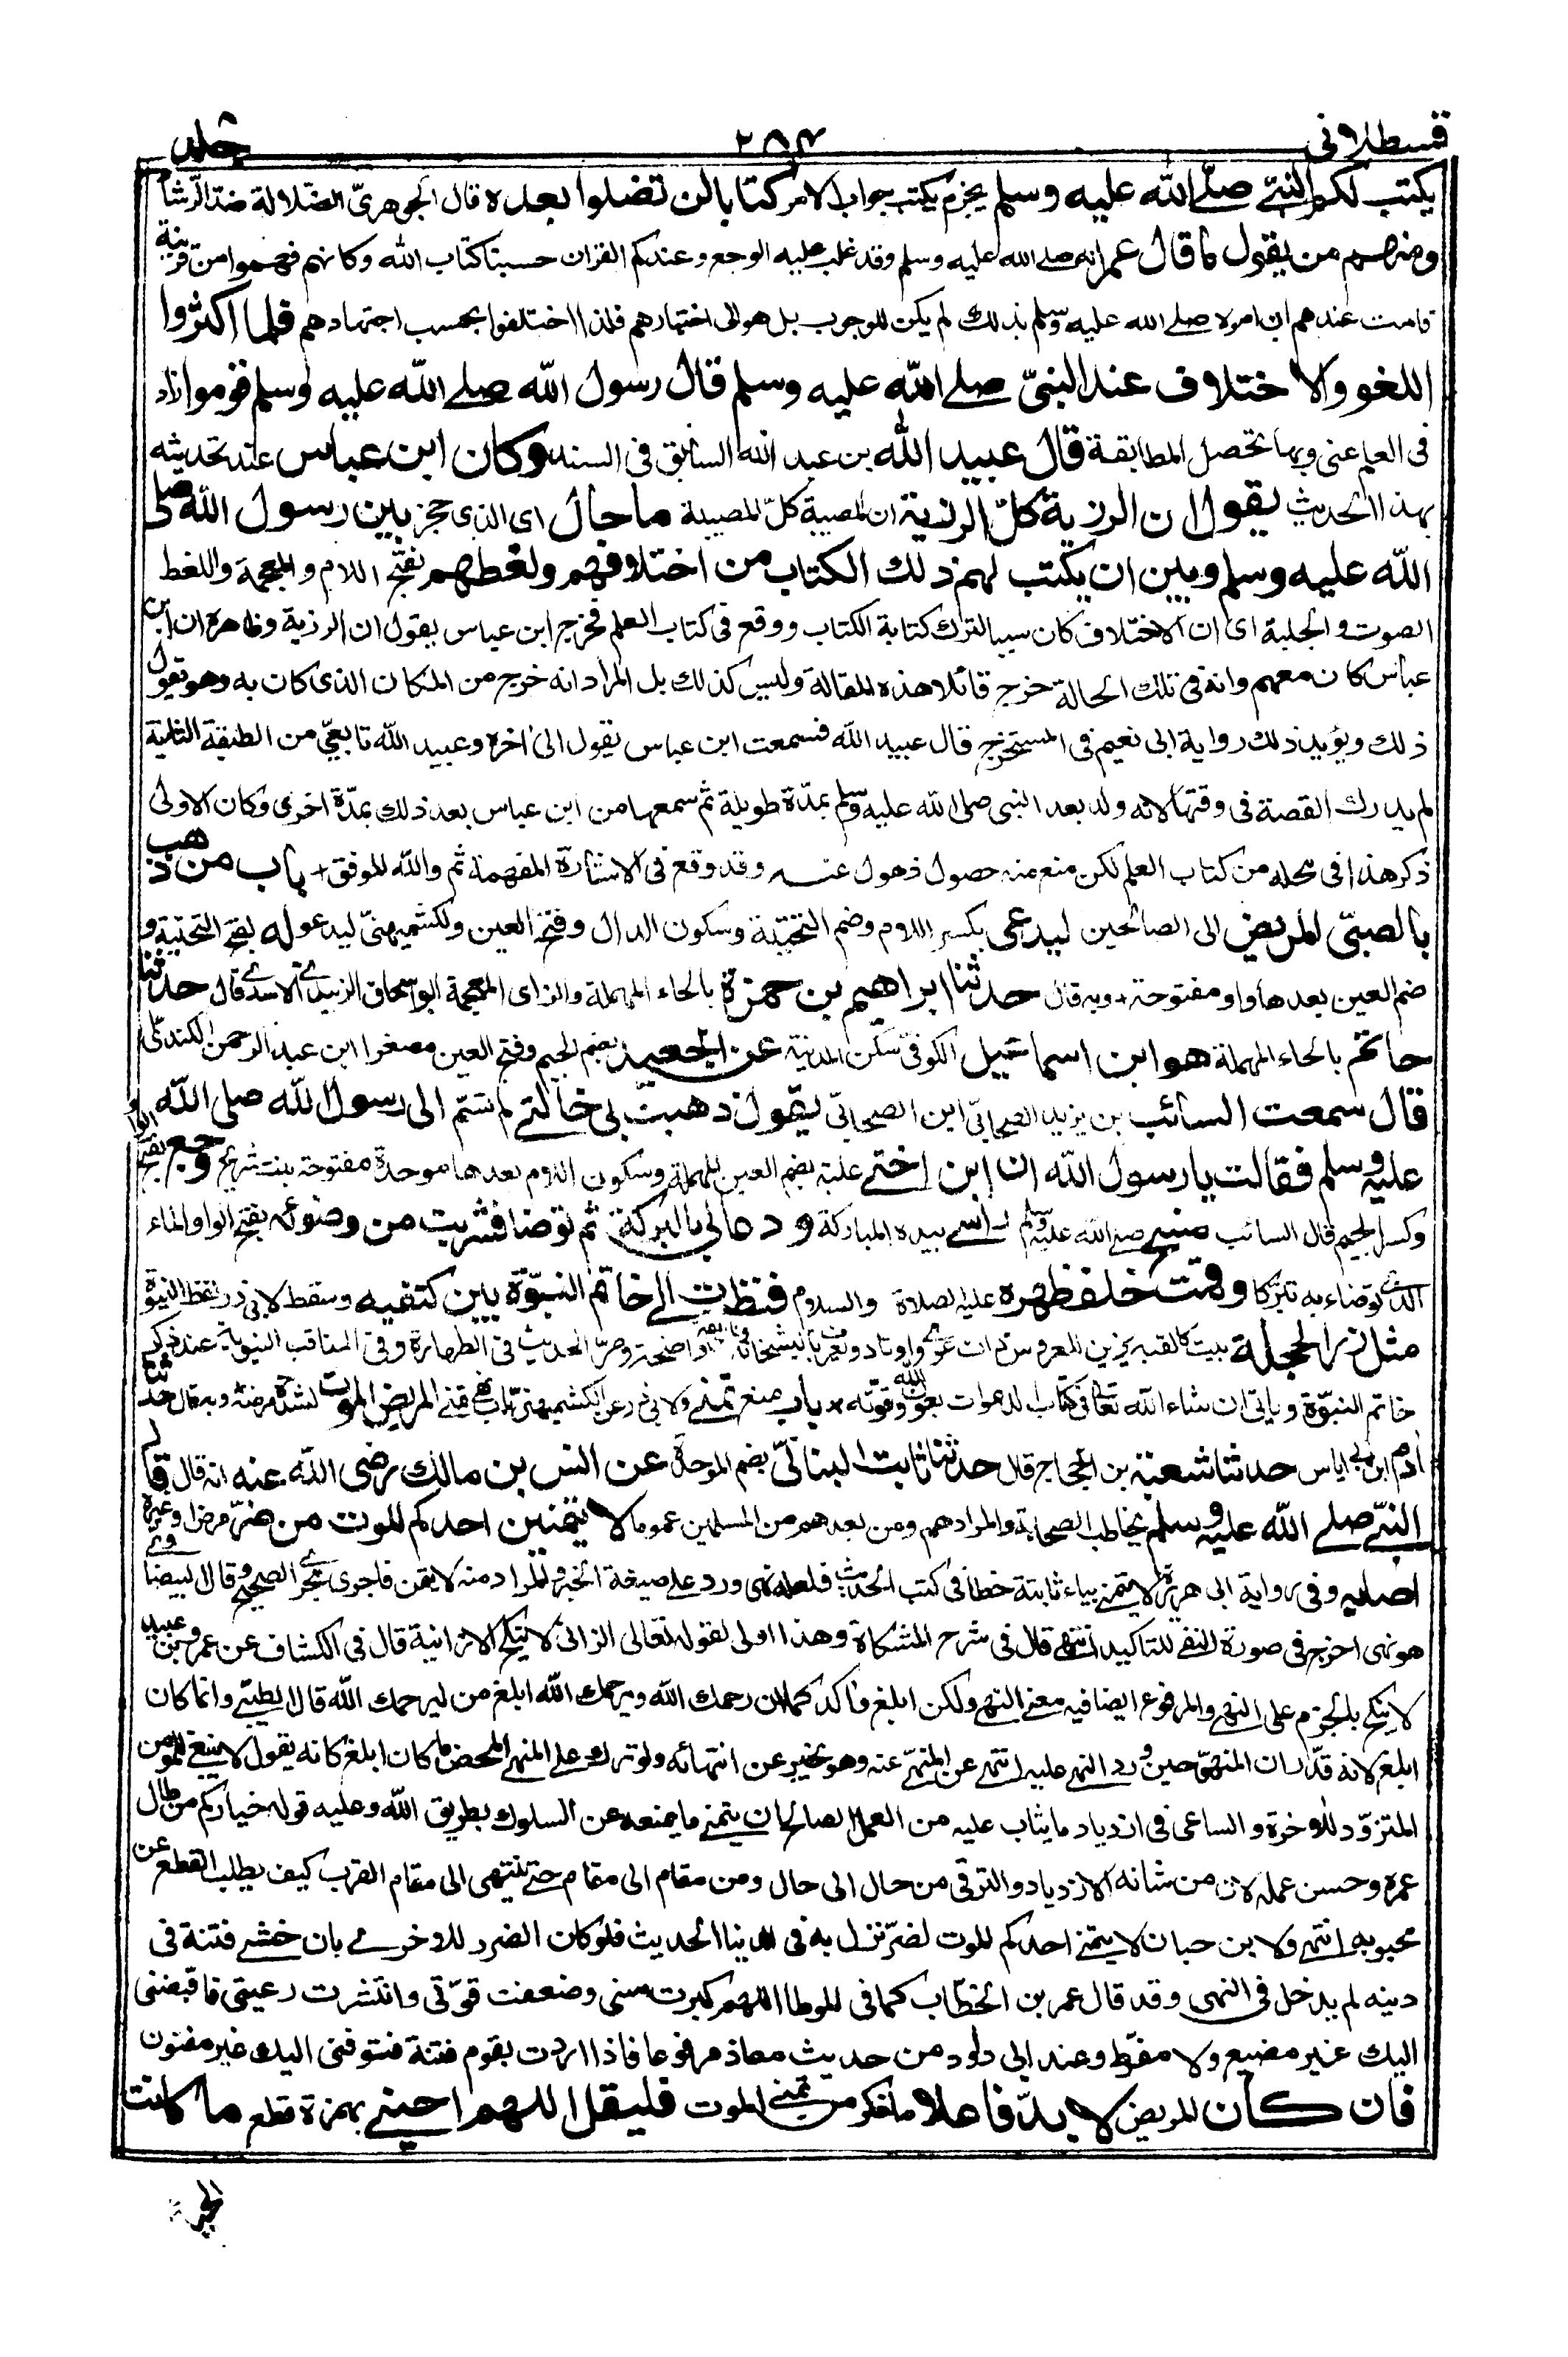 قسطلانى ٢٨٤ جلد ٨
يكتب لكم النبىّ صلّى الله عليه وسلم بجزم يكتب جواب الامر كتابا لن تضلوا بعده قال الجوهرىّ الضلالة ضدّ الرشاد
ومنهم من يقول ما قال عمر انه صلى الله عليه وسلم قد غلب عليه الوجع وعندكم القران حسبنا كتاب الله وكانهم فهموا من قرينة
قامت عندهم ان امره صلى الله عليه وسلم بذلك لم يكن للوجوب بل هو الى اختيارهم فلذا اختلفوا بحسب اجتهادهم فلما اكثروا
اللغو والاختلاف عند النبىّ صلى الله عليه وسلم قال رسول الله صلى الله عليه وسلم قوموا زاد
فى العلم عنى وبها تحصل المطابقة قال عبيد الله بن عبد الله السابق فى السند وكان ابن عباس عند تحديثه
بهذا الحديث يقول ان الرزية كلّ الرزية ان المصيبة كلّ المصيبة ما حال اى الذى حجز بين رسول الله صلى
الله عليه وسلم وبين ان يكتب لهم ذلك الكتاب من اختلافهم ولغطهم بفتح اللام والمعجمة واللغط
الصوت والجلبة اى ان الاختلاف كان سببا لترك كتابة الكتاب ووقع فى كتاب العلم فخرج ابن عباس يقول ان الرزية وظاهره ان ابن
عباس كان معهم وانه فى تلك الحالة خرج قائلا هذه المقالة وليس كذلك بل المراد انه خرج من المكان الذى كان به وهو يقول
ذلك ويؤيد ذلك رواية ابى نعيم فى المستخرج قال عبيد الله فسمعت ابن عباس يقول الى اخره وعبيد الله تابعىّ من الطبقة الثانية
لم يدرك القصة فى وقتها لانه ولد بعد النبى صلى الله عليه وسلم بمدّة طويلة ثم سمعها من ابن عباس بعد ذلك بمدّة اخرى وكان الاولى
ذكر هذا فى محله من كتاب العلم لكن منع منه حصول ذهول عنه وقد وقع فى الاشارة المفهمة ثم والله الموفق + باب من ذهب
بالصبىّ المريض الى الصالحين ليدعى بكسر اللام وضم التحتية وسكون الدال وفتح العين ولكشميهنىّ ليدعو له بفتح التحتية و
ضم العين بعدها واو مفتوحة + وبه قال حدثنا ابراهيم بن حمزة بالحاء المهملة والزاى المعجمة ابو اسحاق الزبيدى الاسدى قال حدثنا
حاتم بالحاء المهملة هو ابن اسماعيل الكوفىّ سكن المدينة عن الجعيد بضم الجيم وفتح العين مصغرا ابن عبد الرحمن الكندىّ
قال سمعت السائب بن يزيد الصحابىّ ابن الصحابىّ يقول ذهبت بى خالتى لم تسمّ الى رسول الله صلى الله
عليه وسلم فقالت يا رسول الله ان ابن اختى علبة بضم العين المهملة وسكون اللام بعدها موحدة مفتوحة بنت شريح وجع بفتح الواو
وكسر الجيم قال السائب فمسح صلى الله عليه وسلم راسى بيده المباركة ودعا لى بالبركة ثم توضا فشربت من وضوئه بفتح الواو الماء
الذى توضاء به تبرّكا وقمت خلف ظهره عليه الصلاة والسلام فنظرت الى خاتم النبوّة بين كتفيه وسقط لابى ذر لفظ النبوّة
مثل زر الحجلة بيت كالقبه يزين للعروس ذات عرى وازرار
خاتم النبوّة وياتى ان شاء الله تعالى فى كتاب الدعوات بعون الله وقوته * باب منع تمنى ولابى ذر عن الكشميهنىّ باب نهى تمنى المريض الموت لشدة مرضه وبه قال حدثنا
ادم ابن ابى اياس حدثنا شعبة بن الحجاج قال حدثنا ثابت البنانىّ بضم الموحدة عن انس بن مالك رضى الله عنه انه قال قال
النبىّ صلى الله عليه وسلم يخاطب الصحابة والمراد هم ومن بعدهم من المسلمين عموما لا يتمنين احدكم الموت من ضرّ مرض او غيره
اصابه وفى رواية ابى هريرة لا يتمنى بياء ثابتة خطا فى كتب الحديث فلعله نهى ورد على صيغة الخبر والمراد منه لا يتمن فاجرى مجرى الصحيح وقال البيضاوى
هو نهى اخرج فى صورة النفى للتاكيد انتهى قال فى شرح المشكاة وهذا اولى لقوله تعالى الزانى لا ينكح الا زانية قال فى الكشاف عن عمرو بن عبيد
لا ينكح بالجزم على النهى والمرفوع ايضا فيه معنى النهى ولكن ابلغ واكد كما ان رحمك الله ويرحمك الله ابلغ من ليرحمك الله قال الطيبىّ وانما كان
ابلغ لانه قدّر ان المنهىّ حين ورد النهى عليه انتهى عن المنهىّ عنه وهو يخبر عن انتهائه ولو ترك على النهى المحض ما كان ابلغ كانه يقول لا ينبغى للمؤمن
المتزوّد للاخرة والساعى فى ازدياد ما يثاب عليه من العمل الصالح ان يتمنى ما يمنعه عن السلوك بطريق الله وعليه قوله خياركم من طال
عمره وحسن عمله لان من شانه الازدياد والترقى من حال الى حال ومن مقام الى مقام حتى ينتهى الى مقام القرب كيف يطلب القطع عن
محبوبه انتهى ولابن حبان لا يتمنى احدكم الموت لضرّ نزل به فى الدنيا الحديث فلو كان الضرر للاخرى بان خشى فتنة فى
دينه لم يدخل فى النهى وقد قال عمر بن الخطّاب كما فى الموطا اللهم كبرت سنى وضعفت قوّتى وانتشرت رعيتى فاقبضنى
اليك غير مضيع ولا مفرّط وعند ابى داود من حديث معاذ مرفوعا فاذا اردت بقوم فتنة فتوفنى اليك غير مفتون
فان كان المريض لا بدّ فاعلا ما ذكر من تمنى الموت فليقل اللهم احينى بهمزة قطع ما كانت